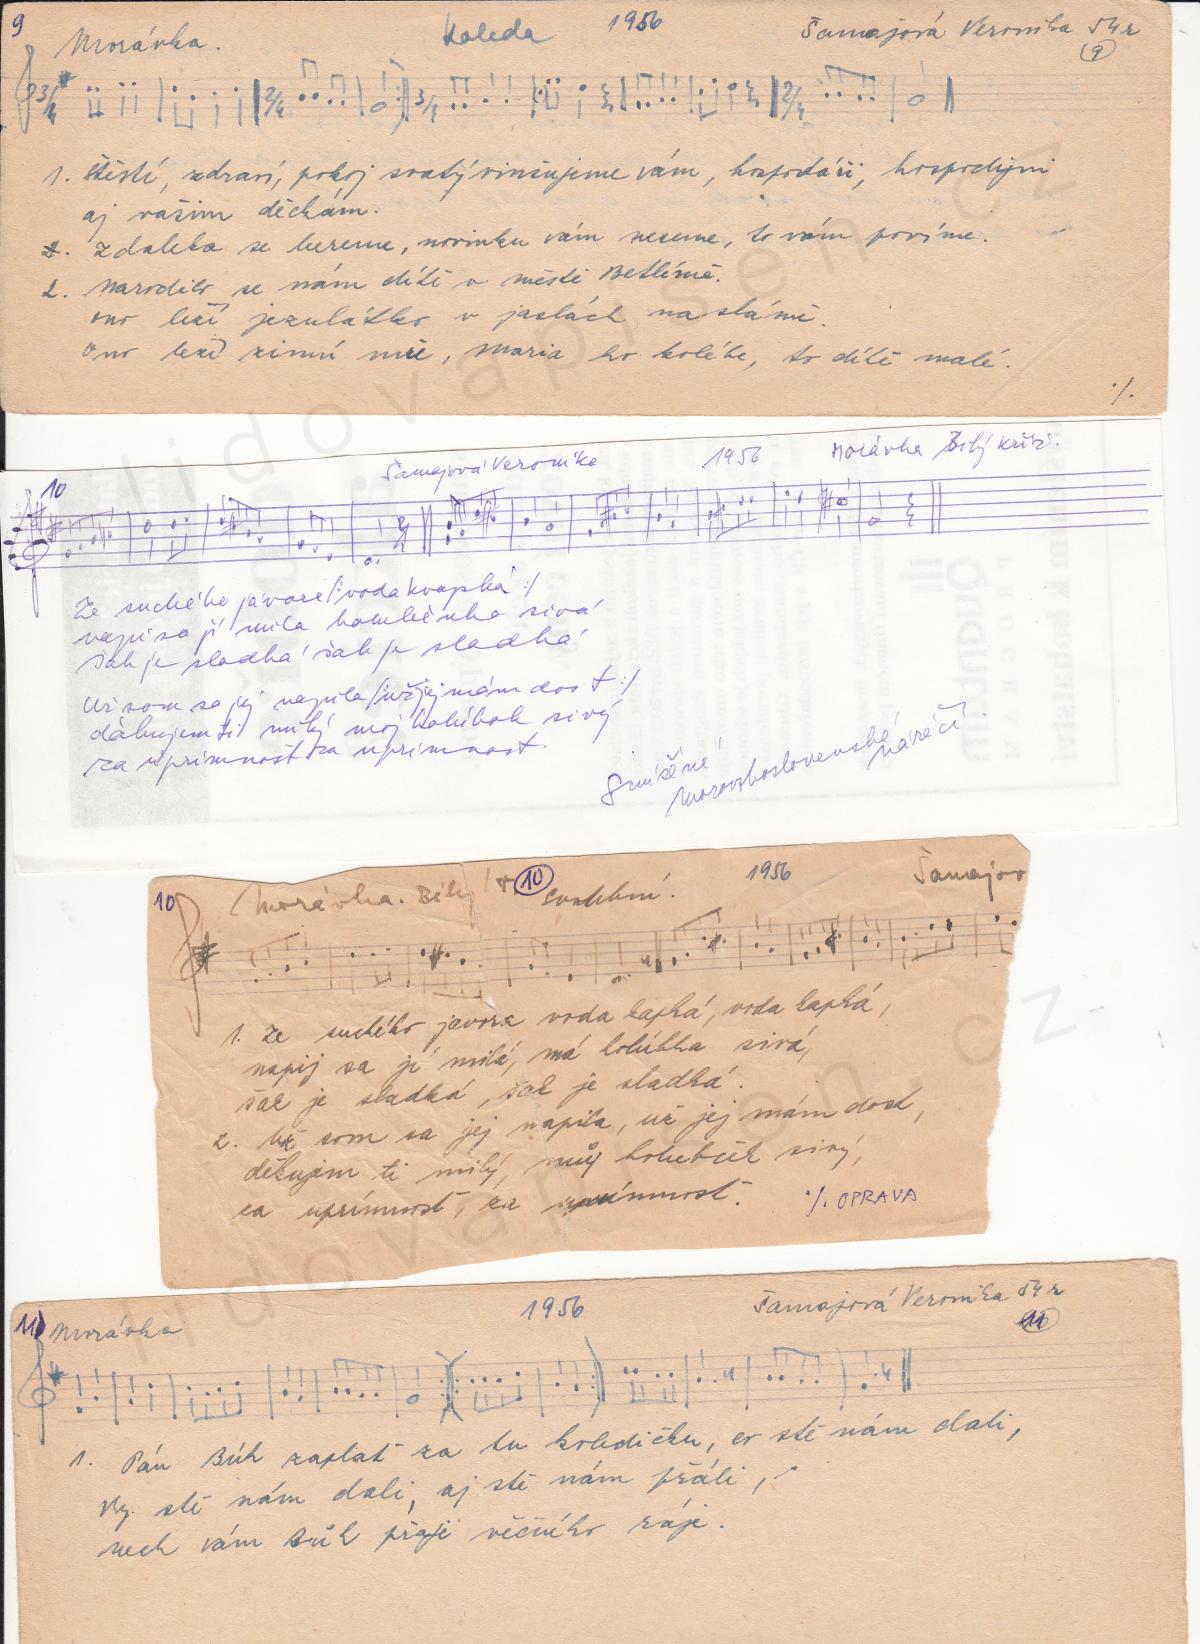 9
Morávka. Koleda 1956 Šamajová Veronika 54 r
9
3/4 2/4 3/4 2/4
1. Štěstí, zdraví, pokoj svatý vinšujeme vám, hospodáři, hospodyni
aj vašim děckám.
2. Zdaleka se bereme, novinku vám neseme, to vám povíme.
2. Narodilo se nám dítě v městě Betlémě.
Ono leží jezulátko v jaslách na slámě.
Ono leží zimú mře, Maria ho koléбe, to dítě malé.
·/.
Šamajová Veronika 1956 Morávka Bílý kříž.
10
Ze suchého javora /: voda kvapká :/
napi sa jí milá holuběnko sivá
šak je sladká šak je sladká
Už som sa jej napila /: už jej mám dost :/
děkujem ti milý moj holúbok sivý
za uprimnost za uprimnost.
Smíšené
moravskoslovenské
nářečí.
10 Morávka. Bílý + 10 svatební. 1956 Šamajov
1. Ze suchého javora voda kapká, voda kapká,
napij sa jí milá, má holúbka sivá,
šak je sladká, šak je sladká.
2. Už som sa jej napila, už jej mám dost,
děkujem ti milý, můj holubčík sivý,
za uprímnost, za uprímnost. ·/. OPRAVA
11) Morávka 1956 Šamajová Veronika 54 r
11
1. Pán Búh zaplať za tu koledičku, co stě nám dali,
Vy stě nám dali, aj stě nám přáli,
nech vám Bůh přaje věčného ráje.
lidovapisen.cz
lidovapisen.cz